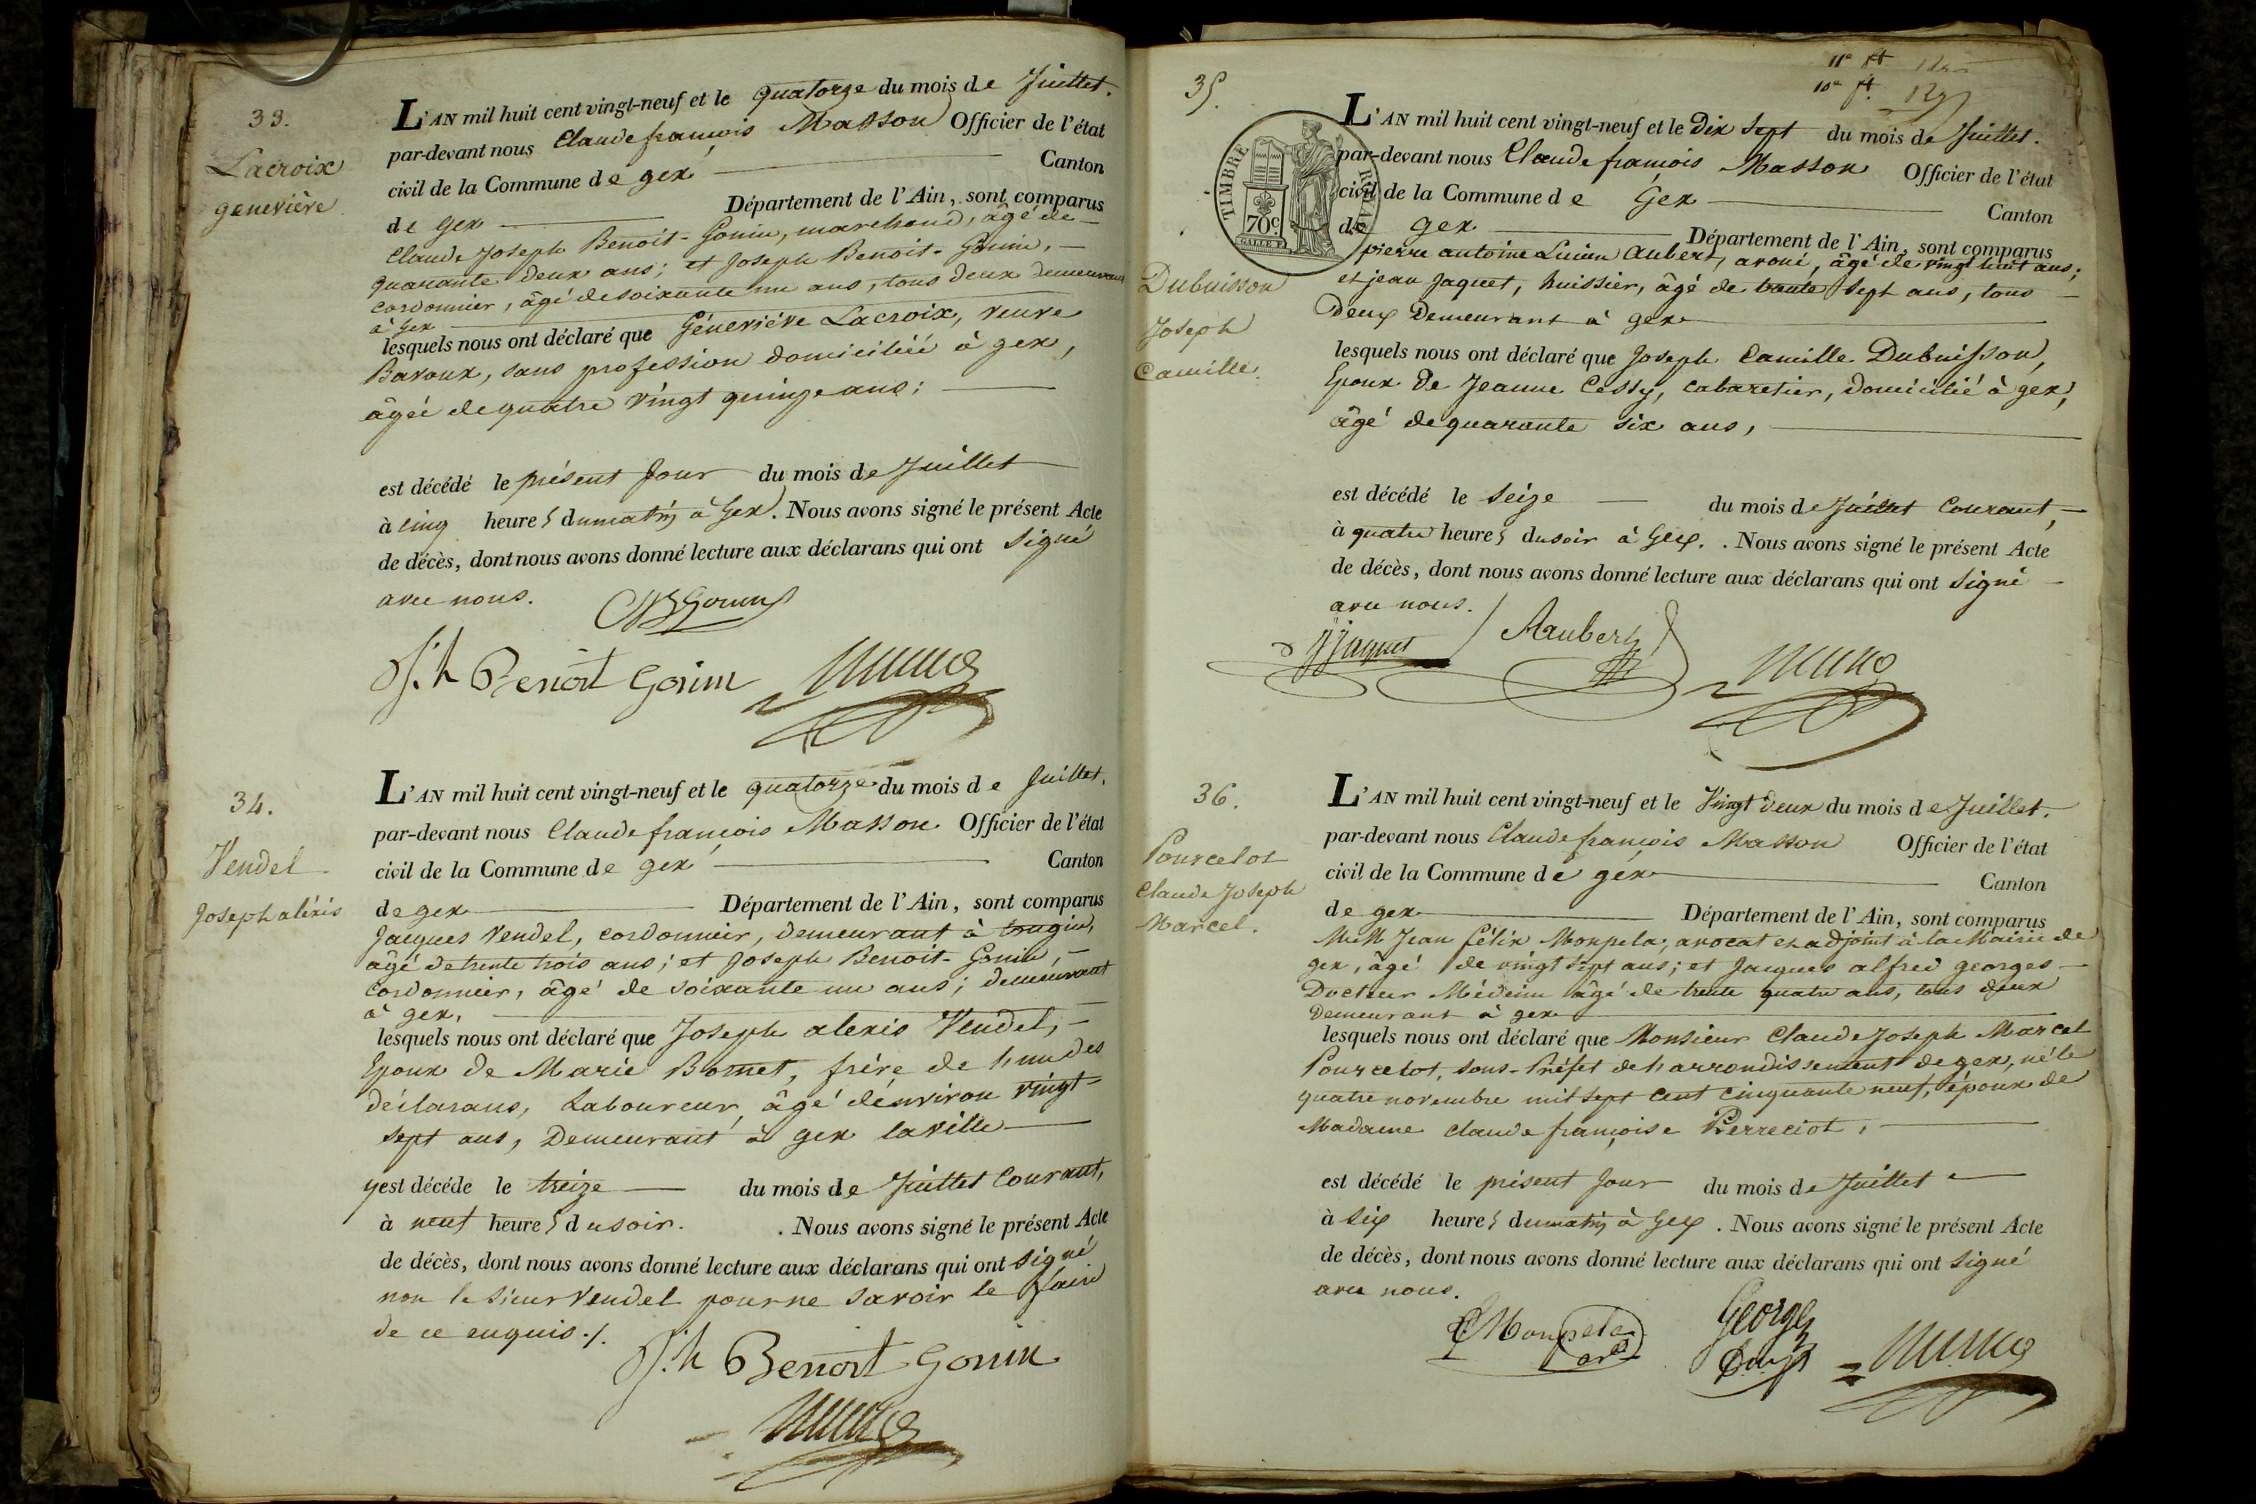 33.
Lacroix
genevière
L'AN mil huit cent vingt-neuf et le quatorze du mois de Juillet.
par-devant nous Claude françois Masson Officier de l'état
civil de la Commune de gex Canton
de gex Département de l'Ain, sont comparus
Claude Joseph Benoit-Gonin, marchand, âgé de
quarante deux ans; et Joseph Benoit-Gonin,
cordonnier, âgé de soixante un ans, tous deux demeurant
à Gex
lesquels nous ont déclaré que Géneviéve Lacroix, veuve
Bavoux, sans profession domiciliéé à gex,
âgéé de quatre vingt quinze ans;
est décédé le présent Jour du mois de Juillet
à cinq heures du matin à Gex. Nous avons signé le présent Acte
de décès, dont nous avons donné lecture aux déclarans qui ont signé
avec nous.
J.h Benoit Gonin
34.
Vendel
Joseph aléxis
L'AN mil huit cent vingt-neuf et le quatorze du mois de Juillet.
par-devant nous Claude françois Masson Officier de l'état
civil de la Commune de gex Canton
de gex Département de l'Ain, sont comparus
Jacques Vendel, cordonnier, demeurant à tougin,
âgé de trente trois ans; et Joseph Benoit-Gonin,
cordonnier, âgé de soixante un ans; demeurant
à gex,
lesquels nous ont déclaré que Joseph alexis Vendel,
Epoux de Marie Bornet, frère de l'un des
déclarans, Laboureur, âgé d'énviron vingt
sept ans, Demeurant à gex la ville
y est décédé le treize du mois de Juillet Courant,
à neuf heures du soir. . Nous avons signé le présent Acte
de décès, dont nous avons donné lecture aux déclarans qui ont signé
non le sieur Vendel pour ne savoir le faire
de ce enquis ./.
J.h Benoit Gonin
11e ft
10e ft.
35.
TIMBRE ROYAL
70c.
Dubuisson
Joseph
Camille.
L'AN mil huit cent vingt-neuf et le Dix Sept du mois de Juillet.
par-devant nous Claude françois Masson Officier de l'état
civil de la Commune de Gex Canton
de gex Département de l'Ain, sont comparus
pierre antoine Lucien Aubert, avoué, âgé de vingt huit ans;
et jean Jaquet, huissier, âgé de trente sept ans, tous
Deux Demeurant à gex
lesquels nous ont déclaré que Joseph Camille Dubuisson,
Epoux de Jeanne Cessy, cabaretier, domicilié à gex,
âgé de quarante six ans,
est décédé le seize du mois de Juillet Courant,
à quatre heures du soir à Gex. . Nous avons signé le présent Acte
de décès, dont nous avons donné lecture aux déclarans qui ont signé
avec nous.
JJaquet Aaubert
36.
Pourcelot
Claude Joseph
Marcel.
L'AN mil huit cent vingt-neuf et le Vingt deux du mois de Juillet.
par-devant nous Claude françois Masson Officier de l'état
civil de la Commune de gex Canton
de gex Département de l'Ain, sont comparus
MM Jean félix Monpela, avocat et adjoint à la Mairie de
gex, âgé de vingt sept ans; et Jacques alfred georges
Docteur Médecin âgé de trente quatre ans, tous deux
Demeurant à gex
lesquels nous ont déclaré que Monsieur Claude Joseph Marcel
Pourcelot, sous-Préfet de l'arrondissement de gex, né le
quatre novembre mil sept cent cinquante neuf, époux de
Madame Claude françoise Perreciot,
est décédé le présent Jour du mois de Juillet
à six heures du matin à Gex . Nous avons signé le présent Acte
de décès, dont nous avons donné lecture aux déclarans qui ont signé
avec nous.
Monpela George